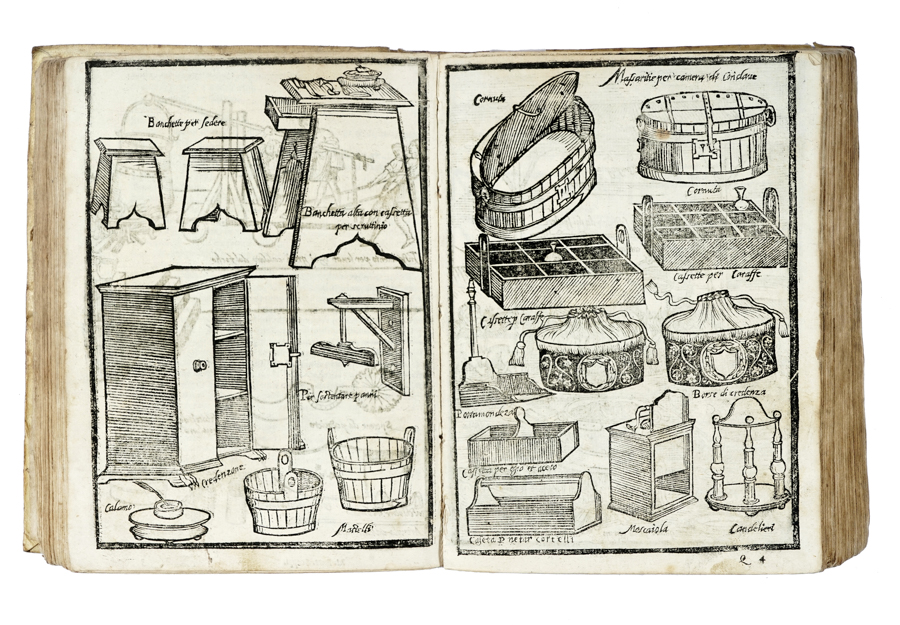 Banchette per sedere
Banchetta alta con cassetta
per scrutinio
Per sostentare panni
Credenzone
Calamo
Mastelli
Massaritie per camera di Conclave
Cornuta
Cornuta
Cassette per Caraffe
Cassette p Caraffe
Borse di credenza
Portamondeza
Cassetta per oglio et aceto
Moscarola
Candelieri
Caseta p riepor cortelli
Q 4